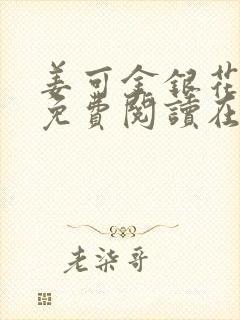 姜可金銀花
免費閱讀在
老柒哥